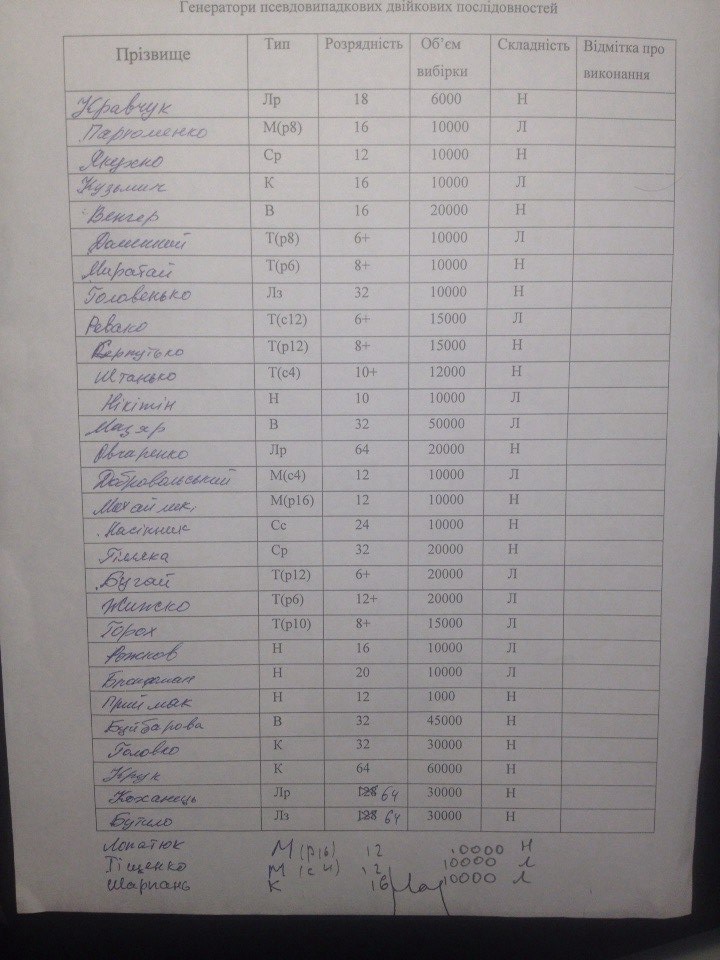 Генератори псевдовипадкових двійкових послідовностей
Прізвище Тип Розрядність Об’єм вибірки Складність Відмітка про виконання
Кравчук Лр 18 6000 Н
Пархоменко М(р8) 16 10000 Л
Якухно Ср 12 10000 Н
Кузьмич К 16 10000 Л
Венгер В 16 20000 Н
Т(р8) 6+ 10000 Л
Миратай Т(р6) 8+ 10000 Н
Головенько Лз 32 10000 Н
Ревако Т(с12) 6+ 15000 Л
Т(р12) 8+ 15000 Н
Штанько Т(с4) 10+ 12000 Н
Нікітін Н 10 10000 Л
Мацяр В 32 50000 Л
Овчаренко Лр 64 20000 Н
Добровольський М(с4) 12 10000 Л
М(р16) 12 10000 Н
Насінник Сс 24 10000 Н
Ср 32 20000 Н
Бугай Т(р12) 6+ 20000 Л
Т(р6) 12+ 20000 Л
Горох Т(р10) 8+ 15000 Л
Рожков Н 16 10000 Л
Бронфман Н 20 10000 Л
Приймак Н 12 1000 Н
Буйбарова В 32 45000 Н
Головко К 32 30000 Н
Крук К 64 60000 Н
Коханець Лр 128 64 30000 Н
Бутило Лз 128 64 30000 Н
Лопатюк М(р16) 12 10000 Н
Тіщенко М(с4) 12 10000 Л
Шарпань К 16 10000 Л